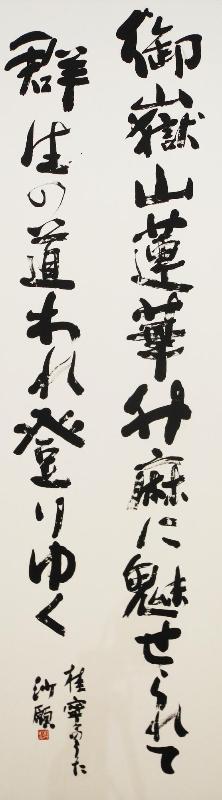 御嶽山蓮華升麻に魅せられて
群生の道われ登りゆく
うた